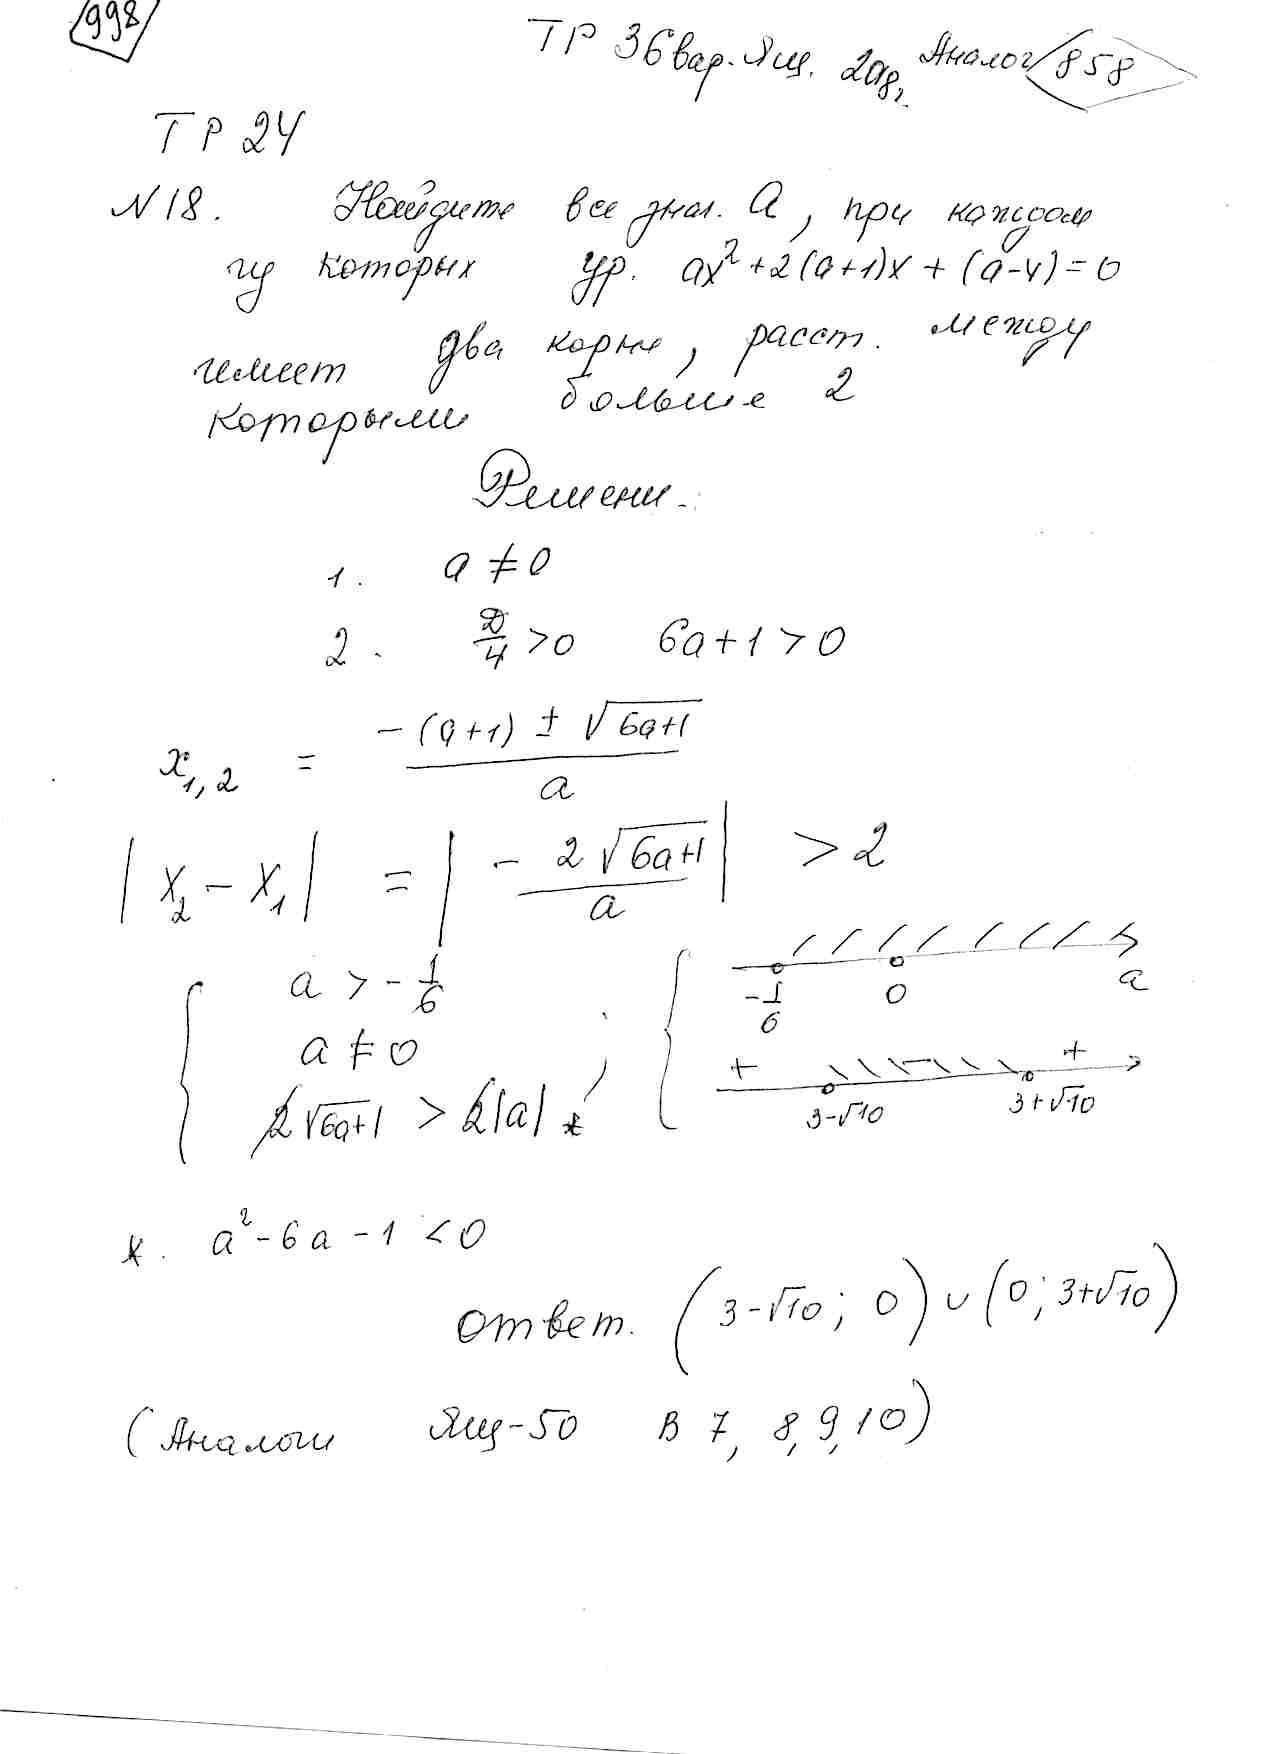 998
ТР 36 вар. Ящ. 2018г. Аналог 858
ТР 24
№18. Найдите все знач. a, при каждом
из которых ур. ax²+2(a+1)x+(a-4)=0
имеет два корня, расст. между
которыми больше 2
Решени
1. a ≠ 0
2. D/4 > 0 6a+1 > 0
x₁,₂ = (-(a+1) ± √(6a+1))/a
|x₂ - x₁| = |- 2√(6a+1)/a| > 2
{ a > -1/6
a ≠ 0
2√(6a+1) > 2|a| *
{ -1/6 0 a
+ 3-√10 3+√10 +
*. a²-6a-1 < 0
Ответ. (3-√10; 0) ∪ (0; 3+√10)
(Аналоги Ящ-50 В 7, 8, 9, 10)